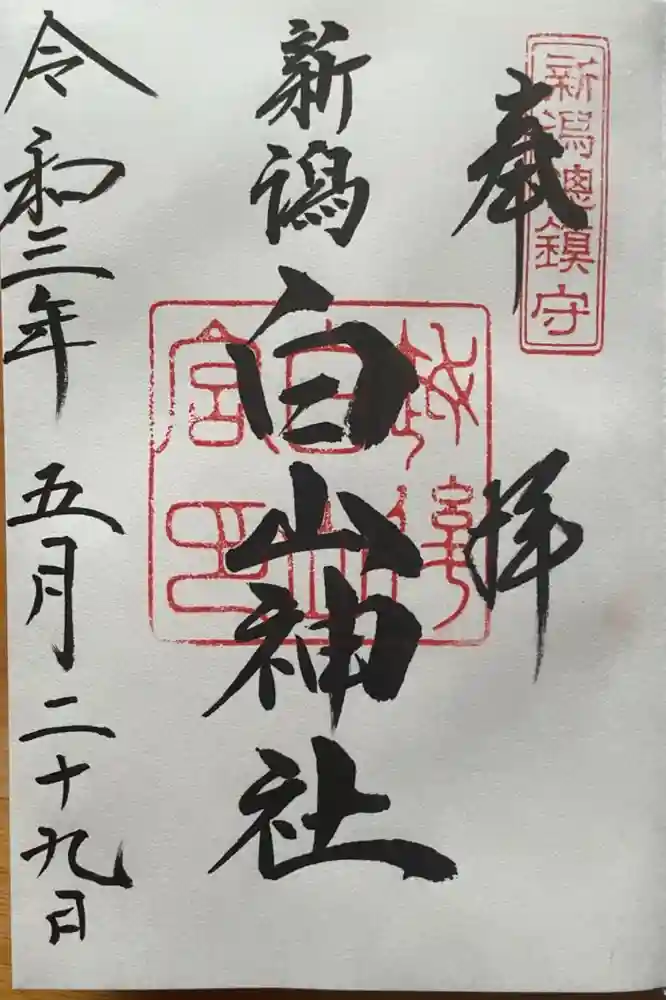 新潟總鎮守
奉拝
新潟
白山神社
令和三年五月二十九日